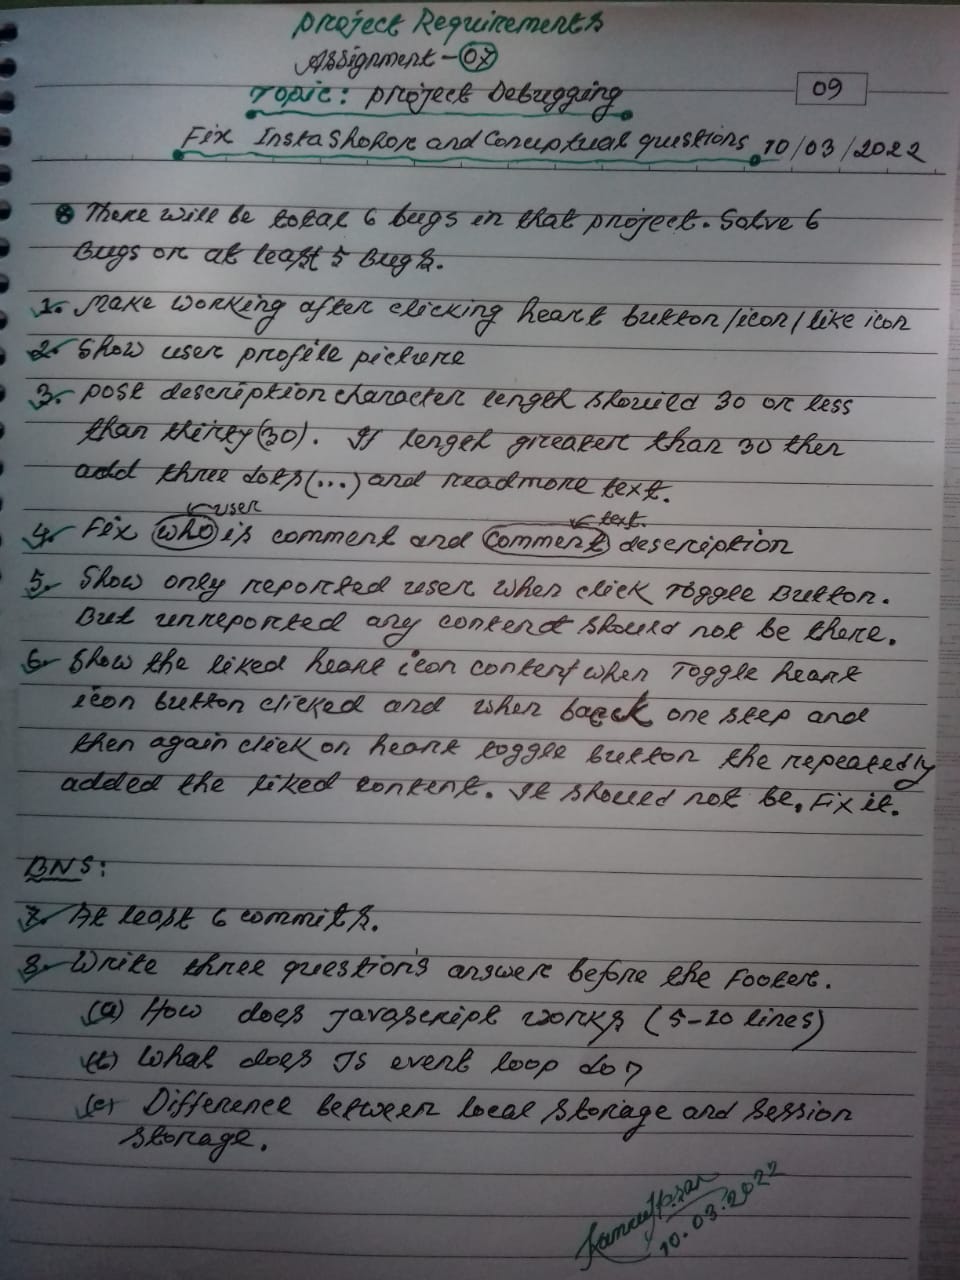 Project Requirements
Assignment-07
Topic: Project Debugging
09
Fix InstaShohor and Conceptual questions 10/03/2022
There will be total 6 bugs in that project. Solve 6
Bugs or at least 5 Bugs.
1. Make working after clicking heart button/icon/like icon
2. Show user profile picture
3. Post description character length should 30 or less
than thirty(30). If length greater than 30 then
add three dots(...) and readmore text.
user text.
4. Fix who is comment and comment description
5. Show only reported user when click Toggle Button.
But unreported any content should not be there.
6. Show the liked heart icon content when Toggle heart
icon button clicked and when back one step and
then again click on heart toggle button the repeatedly
added the liked content. It should not be, Fix it.
BNS:
7. At least 6 commits.
8. Write three question's answer before the Footer.
(a) How does Javascript works (5-10 lines)
(b) What does JS event loop do?
(c) Difference between local storage and session
storage.
10.03.2022